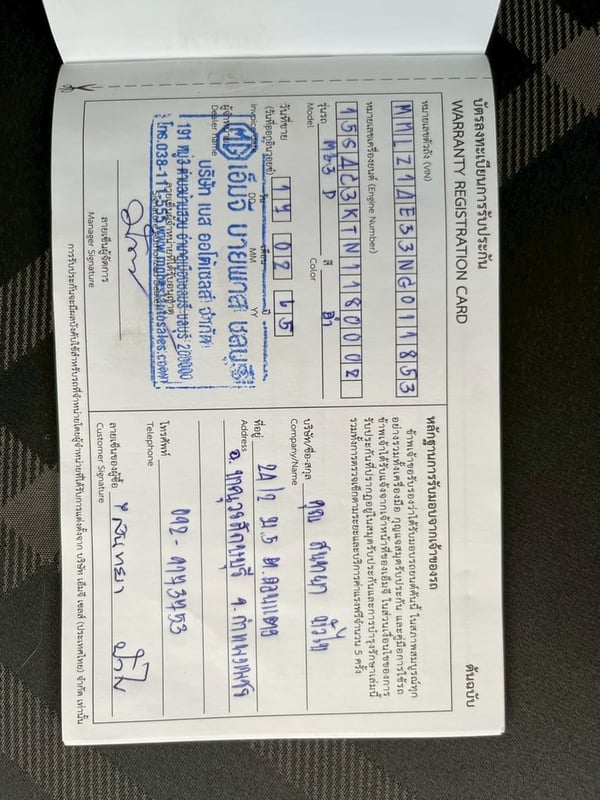 บัตรลงทะเบียนการรับประกัน
WARRANTY REGISTRATION CARD
ต้นฉบับ
หมายเลขตัวถัง (VIN)
MMLZ1AE33NG011853
หมายเลขเครื่องยนต์ (Engine Number)
รุ่นรถ MG3 D สี ดำ
Model Color
วันที่ขาย 17 02 65
(วันที่ออกอินวอยซ์)
Invoice DD MM YY
ผู้จำหน่าย
Dealer name
MG เอ็มจี บายพาส ชลบุรี
บริษัท เบส ออโต้เซลส์ จำกัด
โทร.038-111-555
ลายเซ็นผู้จัดการ
Manager Signature
หลักฐานการรับมอบจากเจ้าของรถ
ข้าพเจ้าขอรับรองว่าได้รับมอบรถยนต์คันนี้ ในสภาพสมบูรณ์ทุก
อย่างรวมทั้งเครื่องมือ กุญแจสมุดรับประกัน และคู่มือการใช้รถ
ข้าพเจ้าได้รับแจ้งจากเจ้าหน้าที่ของเอ็มจี ในส่วนเงื่อนไขของการ
รับประกันที่ปรากฏอยู่ในสมุดรับประกันและการบำรุงรักษาเล่มนี้
รวมทั้งการตรวจเช็กตามระยะและบริการค่าแรงฟรีจำนวน 5 ครั้ง
บริษัท/ชื่อ-สกุล คุณ สนทยา
Company/Name
ที่อยู่ 24/2 ม.5 ต.ดอนแตง
Address อ.ขาณุวรลักษบุรี จ.กำแพงเพชร
โทรศัพท์
Telephone
ลายเซ็นของผู้ซื้อ สนทยา
Customer Signature
การรับประกันจะมีผลบังคับใช้สำหรับรถที่จำหน่ายโดยผู้จำหน่ายที่ได้รับการแต่งตั้งจาก บริษัท เอ็มจี เซลส์ (ประเทศไทย) จำกัด เท่านั้น